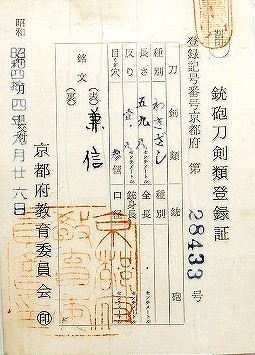 銃砲刀剣類登録証
登録記号番号 京都府 第 28433 号
刀剣類
銃砲
種別 わきざし
種別
長さ 五九・八 センチメートル
全長 センチメートル
反り 壱・八 センチメートル
銃身長 センチメートル
目くぎ穴 参個
口径 センチメートル
銘文 (表) 兼信
(裏)
昭和四拾四年九月廿六日
京都府教育委員会 印